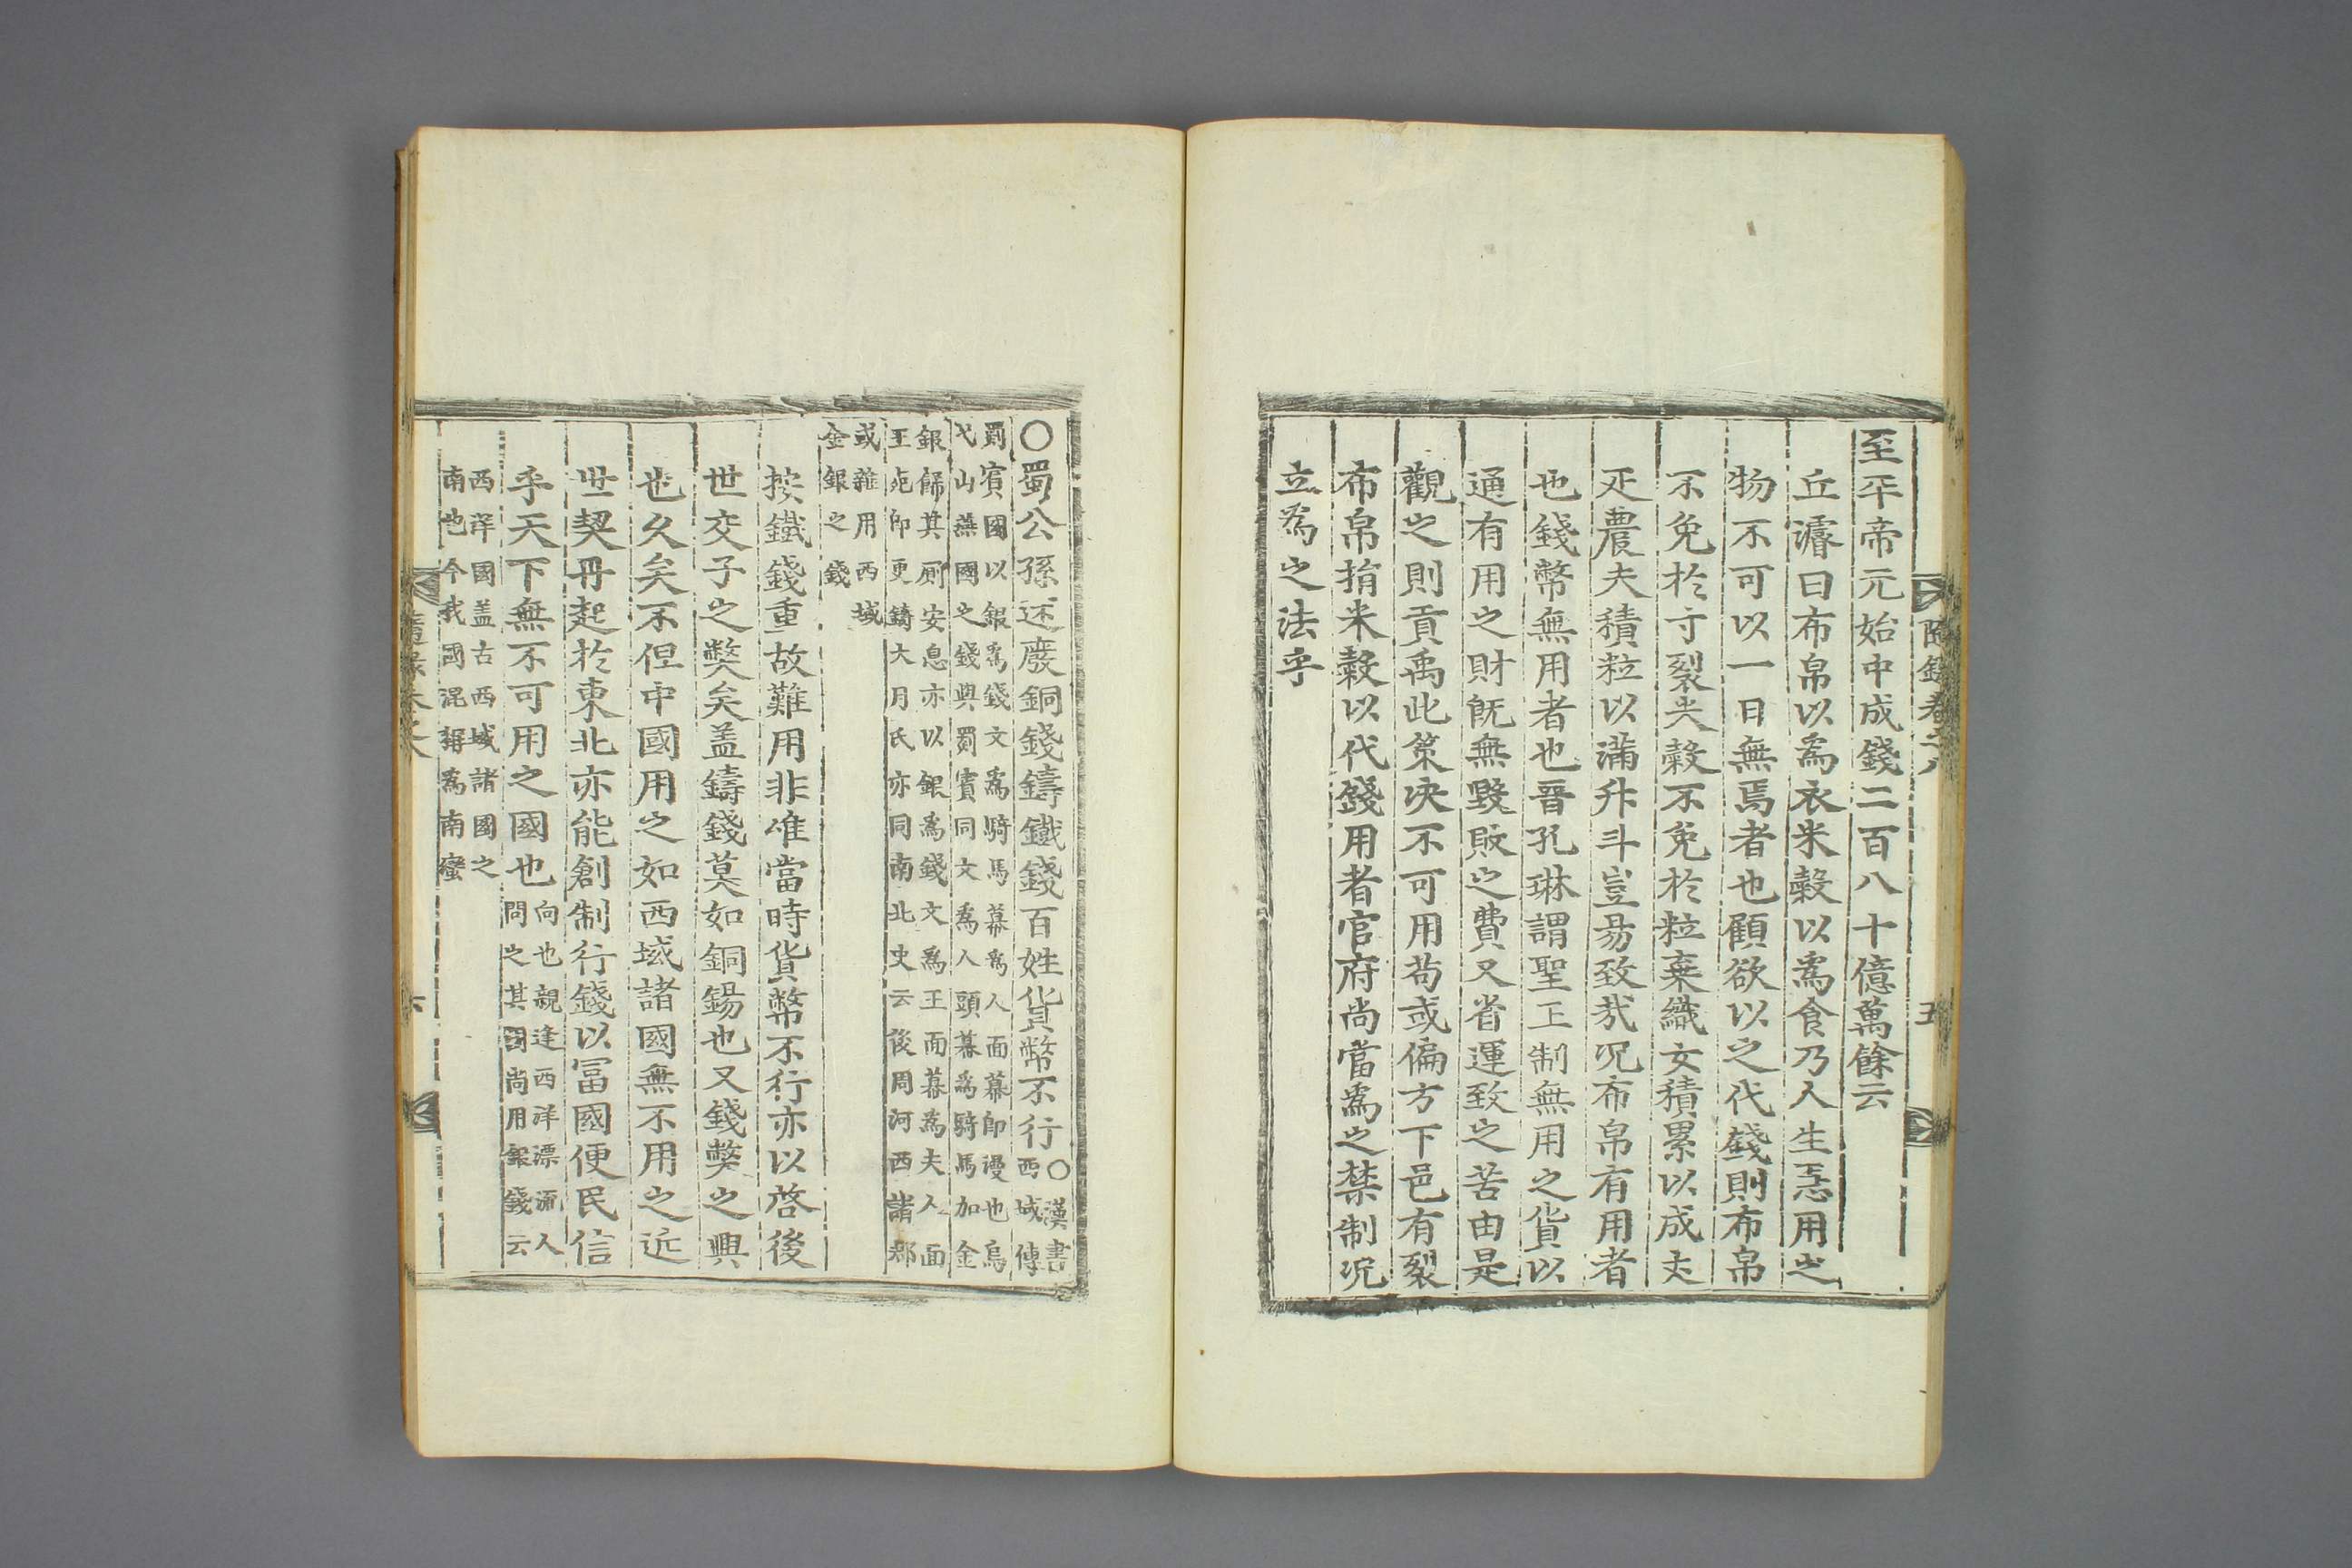 隨錄卷之八
五
至平帝元始中成錢二百八十億萬餘云
丘濬曰布帛以爲衣米穀以爲食乃人生急用之
物不可以一日無焉者也顧欲以之代錢則布帛
不免於寸裂夫穀不免於粒棄織女積累以成丈
疋農夫積粒以滿升斗豈易致哉况布帛有用者
也錢幣無用者也晉孔琳謂聖王制無用之貨以
通有用之財旣無毀敗之費又省運致之苦由是
觀之則貢禹此策决不可用苟或偏方下邑有裂
布帛捐米穀以代錢用者官府尚當爲之禁制况
立爲之法乎
○蜀公孫述廢銅錢鑄鐵錢百姓貨幣不行○漢書西域傳
罽賓國以銀爲錢文爲騎馬幕爲人面幕卽漫也烏
弋山離國之錢與罽賓同文爲人頭幕爲騎馬加金
銀餙其厠安息亦以銀爲錢文爲王面幕爲夫人面
王死卽更鑄大月氏亦同南北史云後周河西諸郡
或雜用西域
金銀之錢
按鐵錢重故難用非唯當時貨幣不行亦以啓後
世交子之弊矣盖鑄錢莫如銅鍚也又錢弊之興
也久矣不但中國用之如西域諸國無不用之近
世契丹起於東北亦能創制行錢以冨國便民信
乎天下無不可用之國也向也親逢西洋漂流人
問之其國尚用銀錢云
西洋國盖古西域諸國之
南也今我國混稱爲南蠻
隨錄卷之八
六